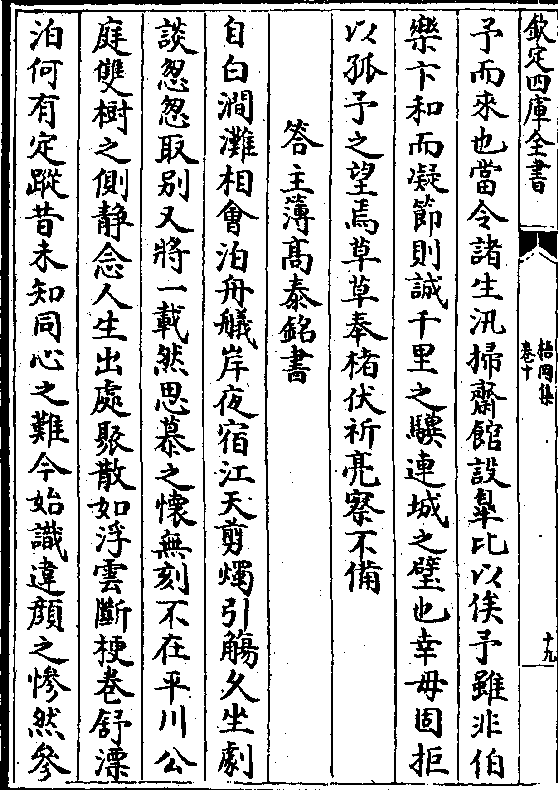 欽定四庫全書
枯岡集
卷十
十九
予而來也當令諸生汛掃齋館設臯比以俟予雖非伯
樂卞和而凝節則誠千里之驥連城之璧也幸毋固拒
以孤予之望焉草草奉楮伏祈亮察不備
答主簿髙泰銘書
自白澗灘相會泊舟艤岸夜宿江天剪燭引觴久坐劇
談忽忽取别又將一載然思慕之懷無刻不在平川公
庭雙樹之側静念人生出處聚散如浮雲斷梗巻舒漂
泊何有定蹤昔未知同心之難今始識違顔之慘然參